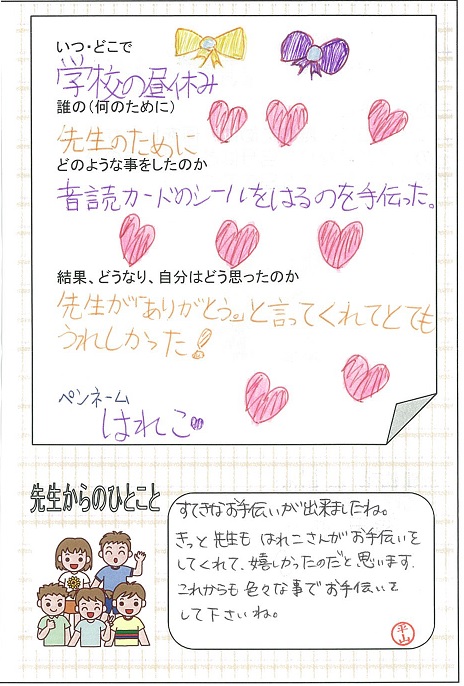 いつ・どこで
学校の昼休み
誰の(何のために)
先生のために
どのような事をしたのか
音読カードのシールをはるのを手伝った。
結果、どうなり、自分はどう思ったのか
先生が「ありがとう。」と言ってくれてとても
うれしかった!
ペンネーム
はれこ
先生からのひとこと
すてきなお手伝いが出来ましたね。
きっと先生も はれこさんがお手伝いを
してくれて、嬉しかったのだと思います。
これからも色々な事でお手伝いを
して下さいね。
平山